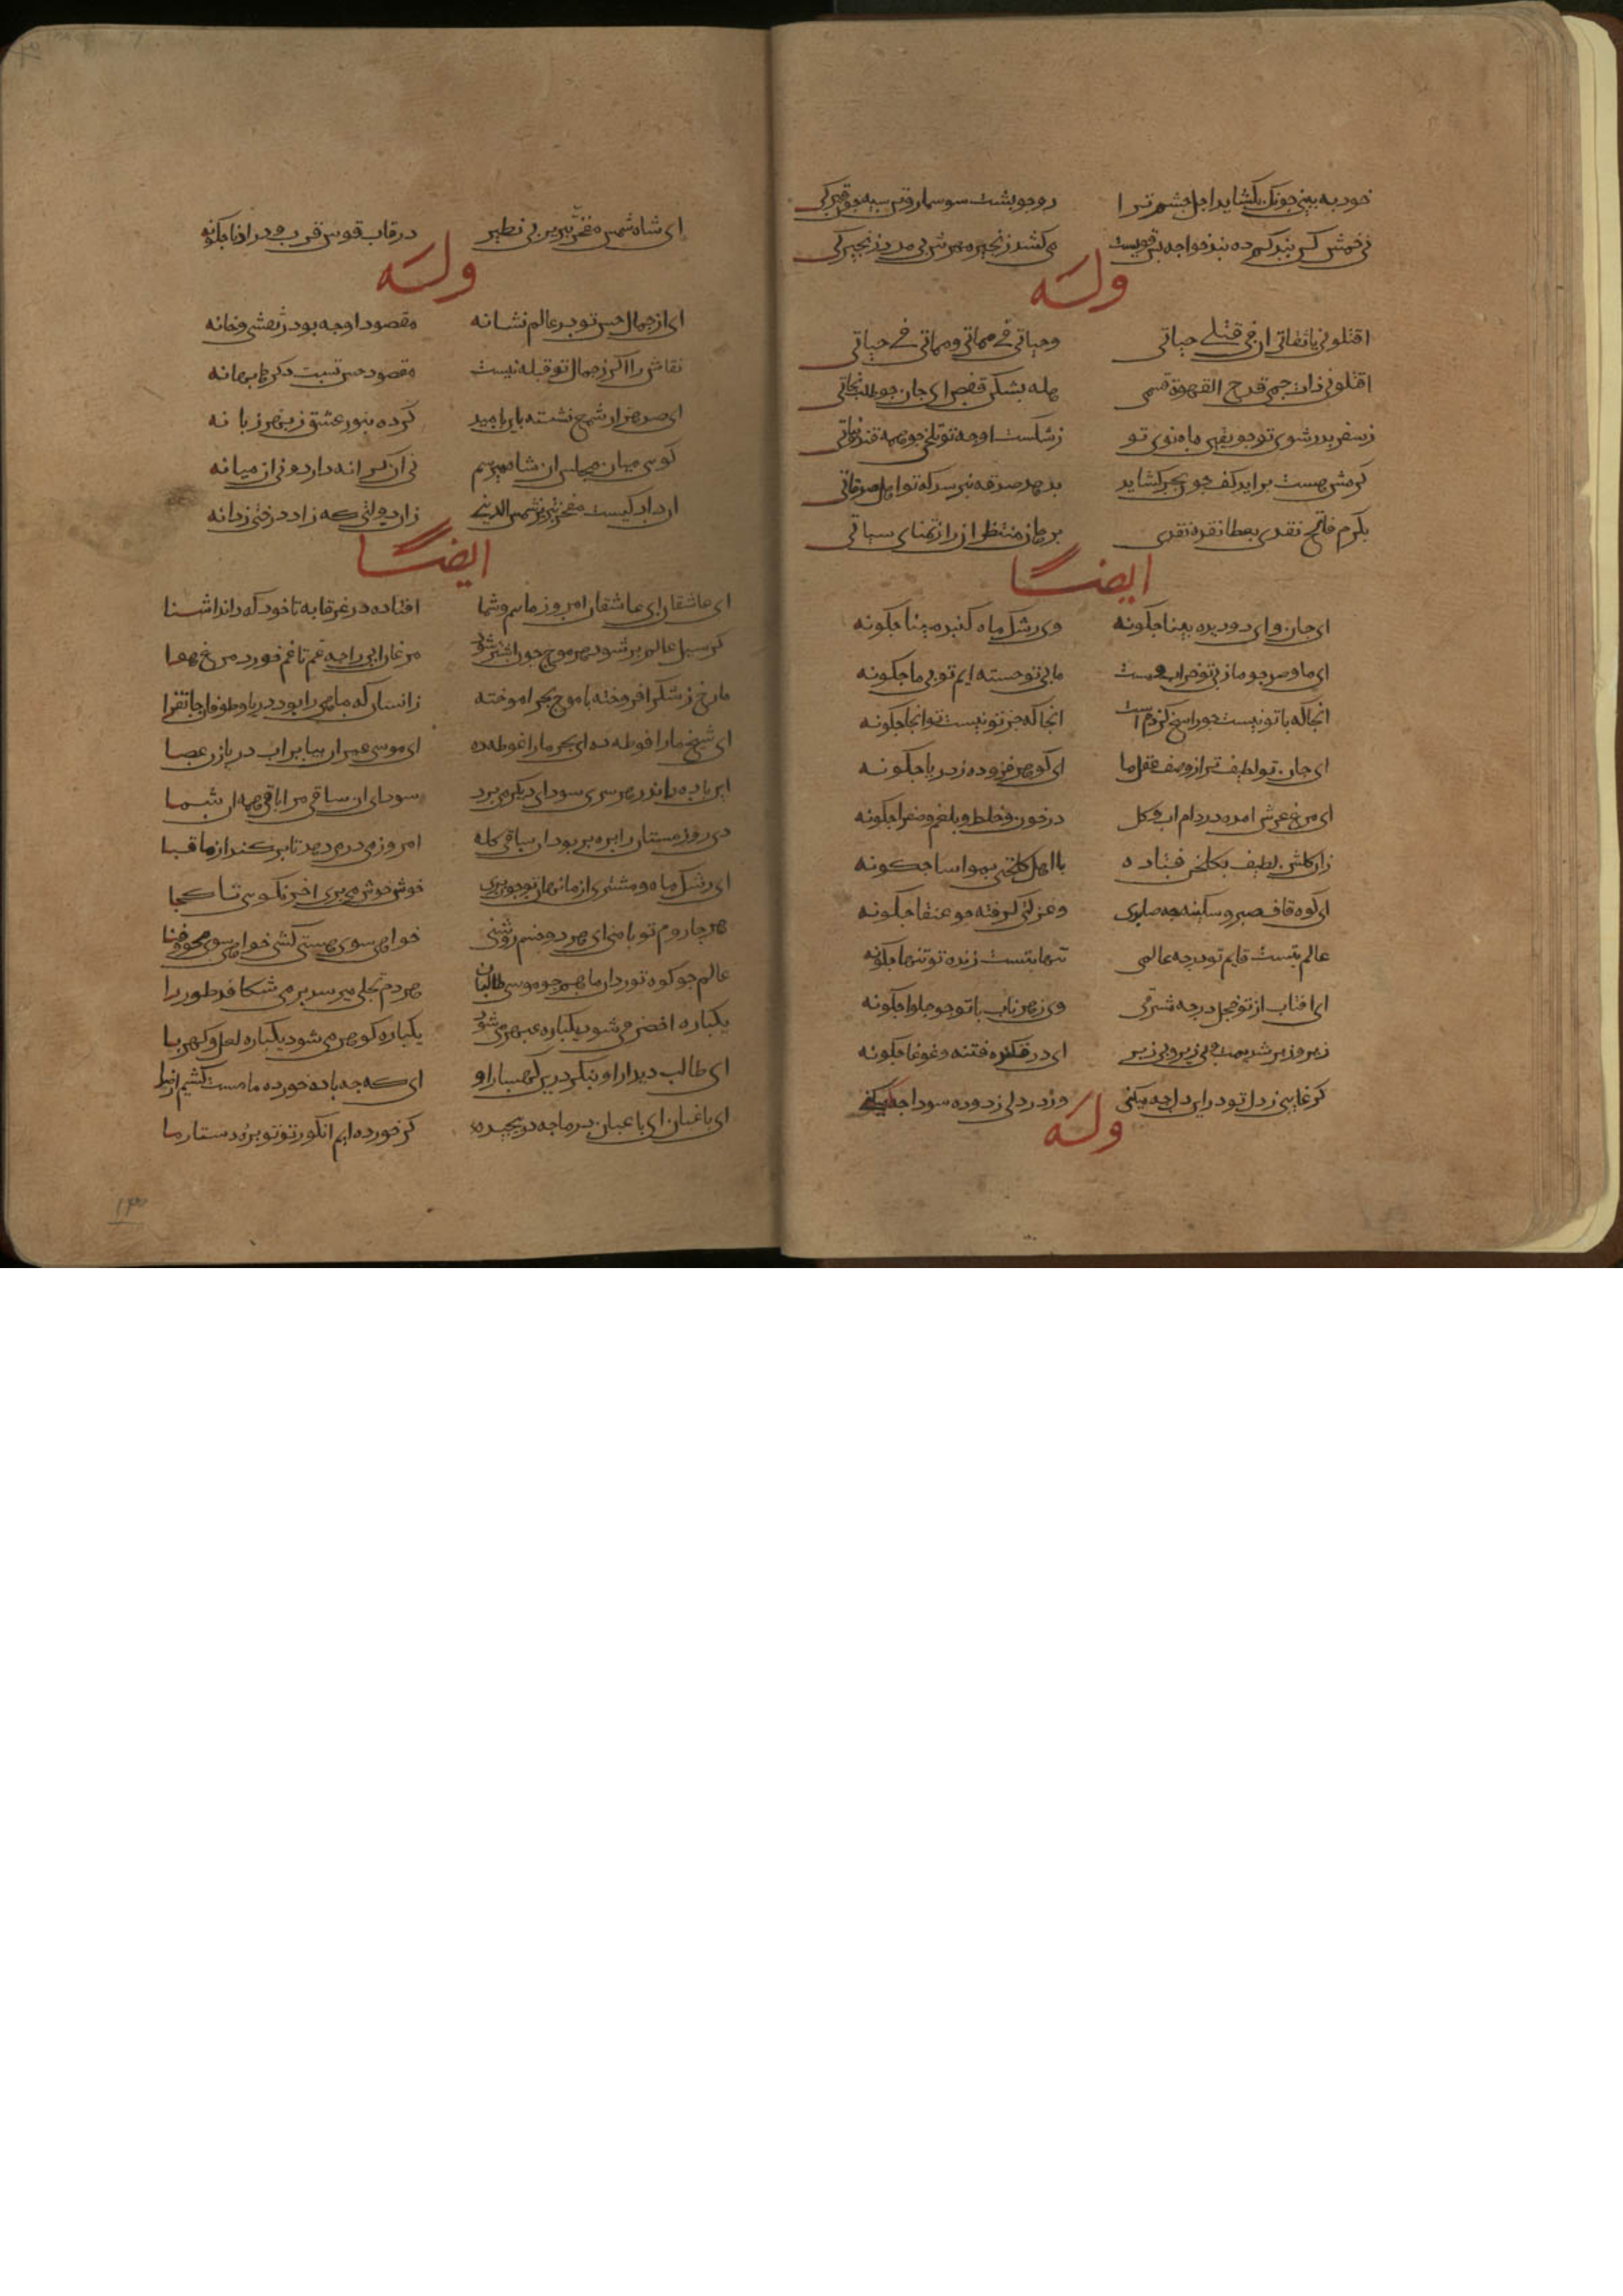 خود به بینی چونک بکشاید اجل چشم ترا رو چو پشت سوسمار و تن سیه چو قیرکی
نی خمش کن بند کم ده بند خواجه بس قویست می کشد زنجیر مهرش بی مدد زنجیرکی
وله
اقتلونی یا ثقاتی ان فی قتلی حیاتی وحیاتی فی مماتی ومماتی فی حیاتی
اقتلونی ذات جسمی قدح القهوة قسمی هله بشکن قفص ای جان جو طلب نجاتی
ز سفر بدر شوی تو جو یقین ماه نوی تو ز شکست او جه تو تلخی جو همه قند و نباتی
کرمش هست بر اید کف جون بحر کشاید بدهد صدقه نپرسد که تو اهل صدقاتی
بکرم فاتح نقدی بعطا نقده نقدی برهان منتظران را ز تمنای سباتی
ایضا
ای جان وای دو دیده بینا جکونه وی رشک ماه کنبد مینا جکونه
ای ما و صد جو ما ز بی تو خراب و مست ما بی تو خسته ایم تو بی ما جکونه
انجا که با تو نیست جو سوراخ کزدم است انجا که جز تو نیست تو انجا جکونه
ای جان تو لطیف تر از وصف عقل ما ای کوهر فزوده ز دریا جکونه
ای مرغ عرش امده در دام اب و کل در خون و خلط و بلغم و صفرا جکونه
زان کلشن لطیف بکلخن فتاده با اهل کلخنی بمواسا جکونه
ای کوه قاف صبر و سکینه جه صابری وعزلتی کرفته جو عنقا جکونه
عالم بتست قایم تو در جه عالمی تنها بتست زنده تو تنها جکونه
ای افتاب از تو خجل در جه مشرقی وی زهر ناب با تو جو حلوا جکونه
زیر و زبر شدیمت بی زیر و بی زبر ای در فکنده فتنه و غوغا جکونه
کر غایبی ز دل تو در این دل جه میکنی ور در دلی ز دوده سودا جکونه
وله
ای شاه شمس مفخر تبریز بی نظیر در قاب قوس قرب و در ادنا جکونه
وله
ای از جمال حسن تو در عالم نشانه مقصود او جه بود ز نقشی و خانه
نقاش را اکر ز جمال تو قبله نیست مقصود جه نیست دکر ها بهانه
ای صد هزار شمع نشسته باین امید کرده بنور عشق زبنهر زبانه
کوسی میان مجلس ان شاه میرسم نی ان کرانه دارد و نی از میانه
ان داد کیست مفخر تبریز شمس الدینی زان دولتی که زاد درختی ز دانه
ایضا
ای عاشقان ای عاشقان امروز ماییم و شما افتاده در غرقابه تا خود که داند اشنا
کر سیل عالم پر شود هر موج جون اشتر شود مرغان ابی را جه غم تا غم خورد مرغ هوا
ما رخ ز شکر افروخته با موج بحر اموخته زانسان که ماهی را بود دریا و طوفان جانفزا
ای شیخ ما را فوطه ده ای بحر ما را غوطه ده ای موسی عمران بیا بر اب دریا زن عصا
این باد اندر هر سری سودای دیکر می برد سودای ان ساقی مرا باقی همه ان شما
دی روز مستان را بره بر بود ان ساقی کله امروز می در می دهد تا بر کند از ما قبا
ای رشک ماه و مشتری از ما نهان تو جون پری خوش خوش می بری اخر نکویی تا کجا
هر جا روم تو با منی ای هر دو جشم روشنی خواهی سوی مستی کش خواهی سوی محو و فنا
عالم جو کوه تور دان ما همجو موسی طالبان هر دم تجلی میرسد بر می شکافد طور را
یکباره اخضر می شود یکباره عبهر می شود یکباره کوهر می شود یکباره لعل و کهربا
ای طالب دیدار او بنکر درین کهسار او ای که جه باده خورده ما مست کشتیم از صدا
ای باغبان ای باغبان در ما جه در پیچیده کر خورده ایم انکور تو تو برده دستار ما